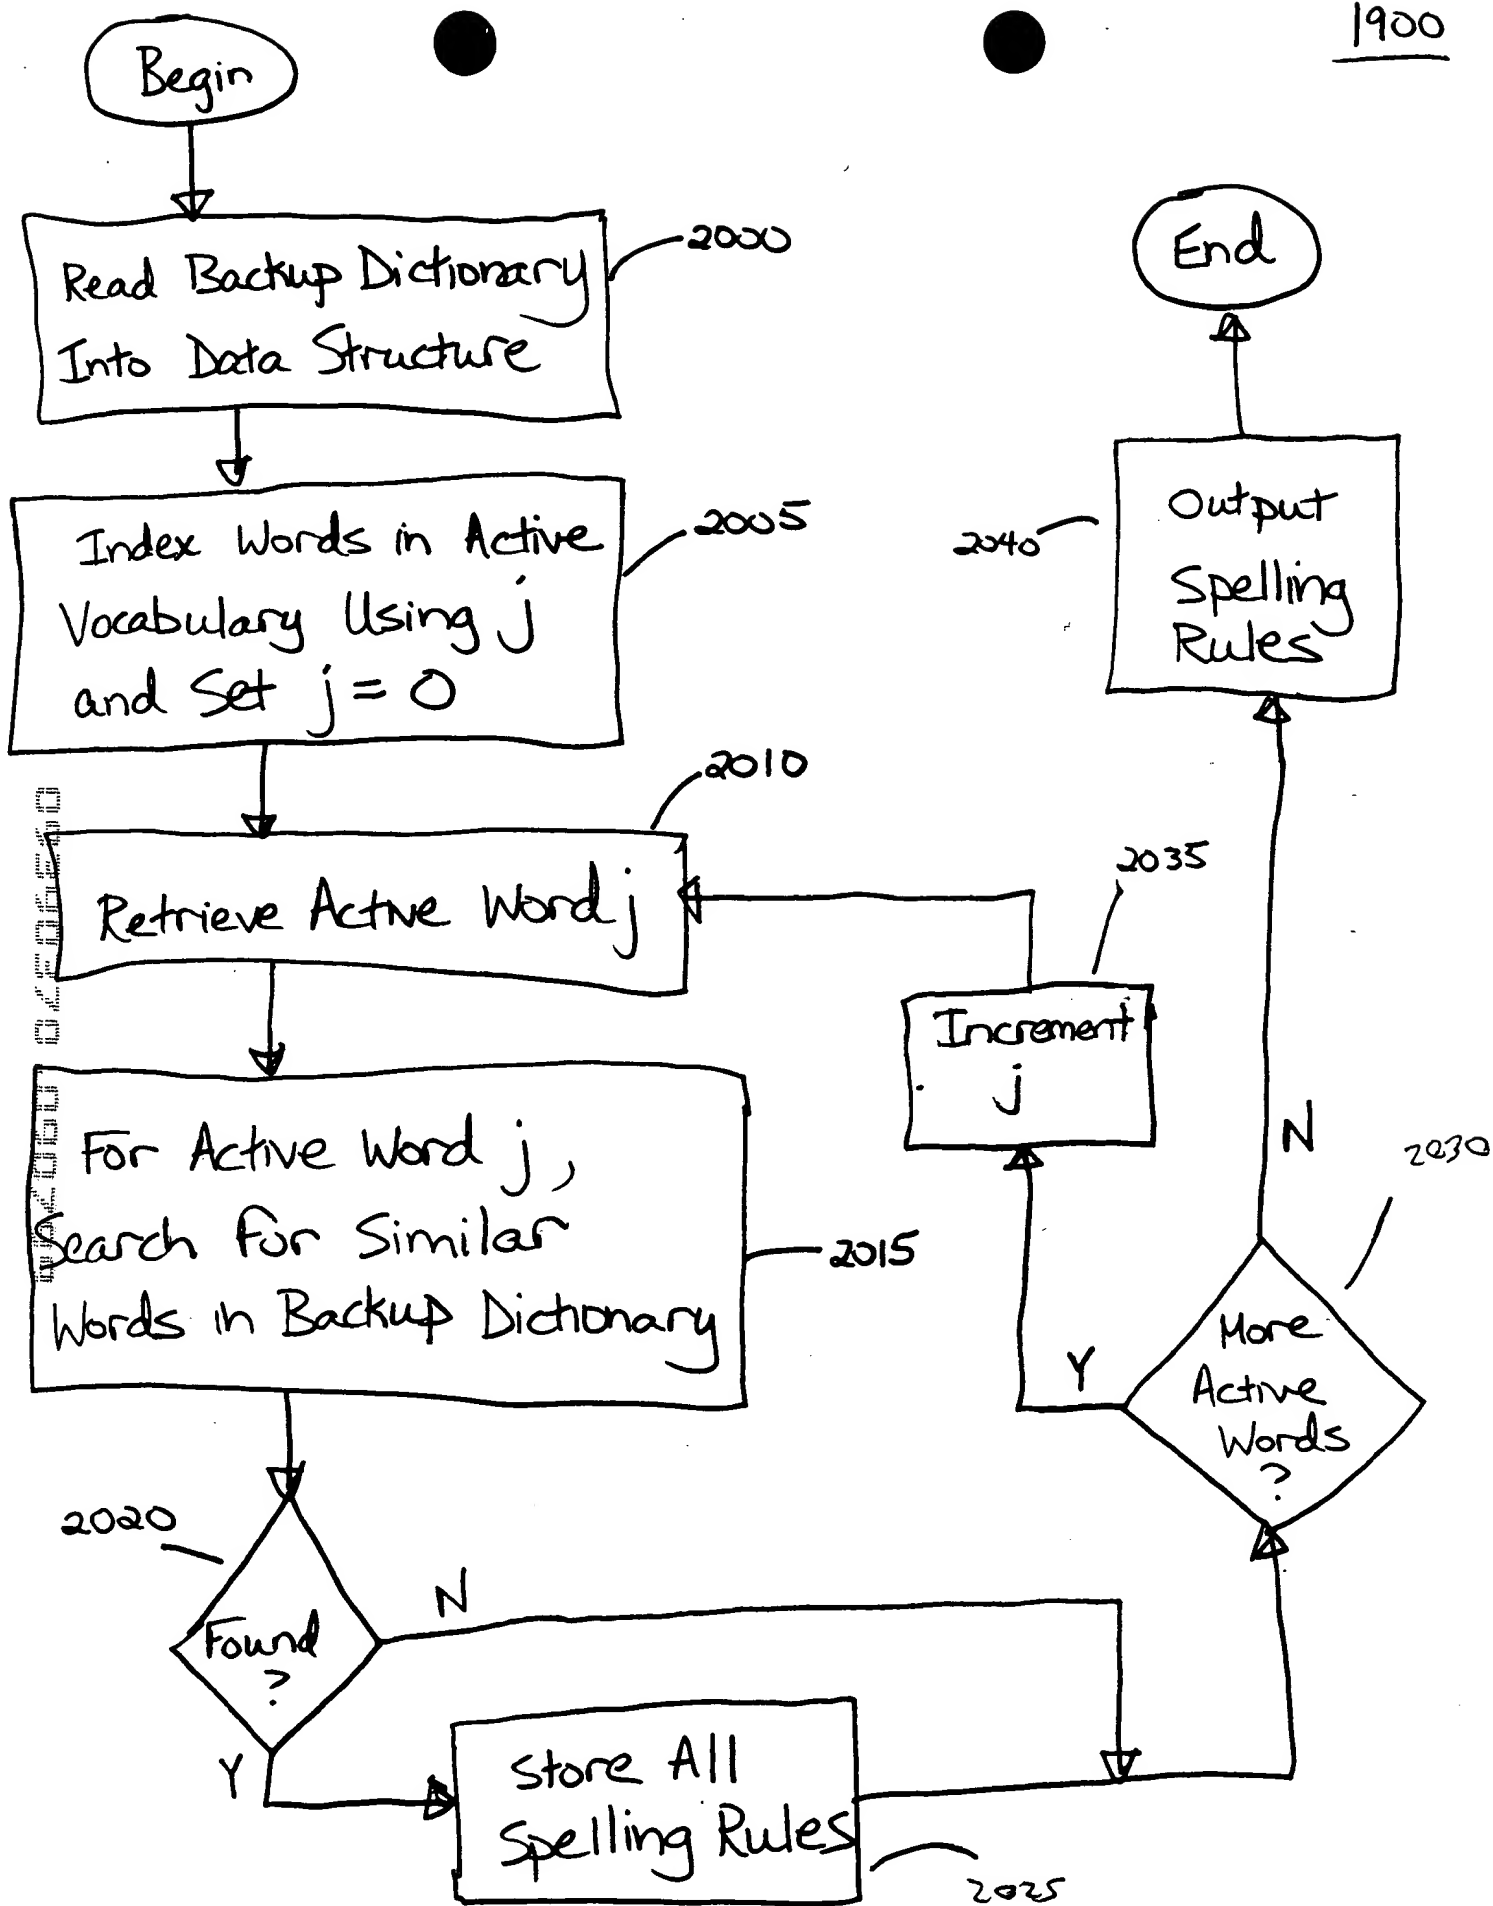 1900
Begin
2000
Read Backup Dictionary
Into Data Structure
2005
Index Words in Active
Vocabulary Using j
and Set j = 0
2010
Retrieve Active Word j
For Active Word j,
Search for Similar
Words in Backup Dictionary
2015
2020
Found
?
N
Y
Store All
Spelling Rules
2025
2030
More
Active
Words
?
Y
N
2035
Increment
j
2040
Output
Spelling
Rules
End